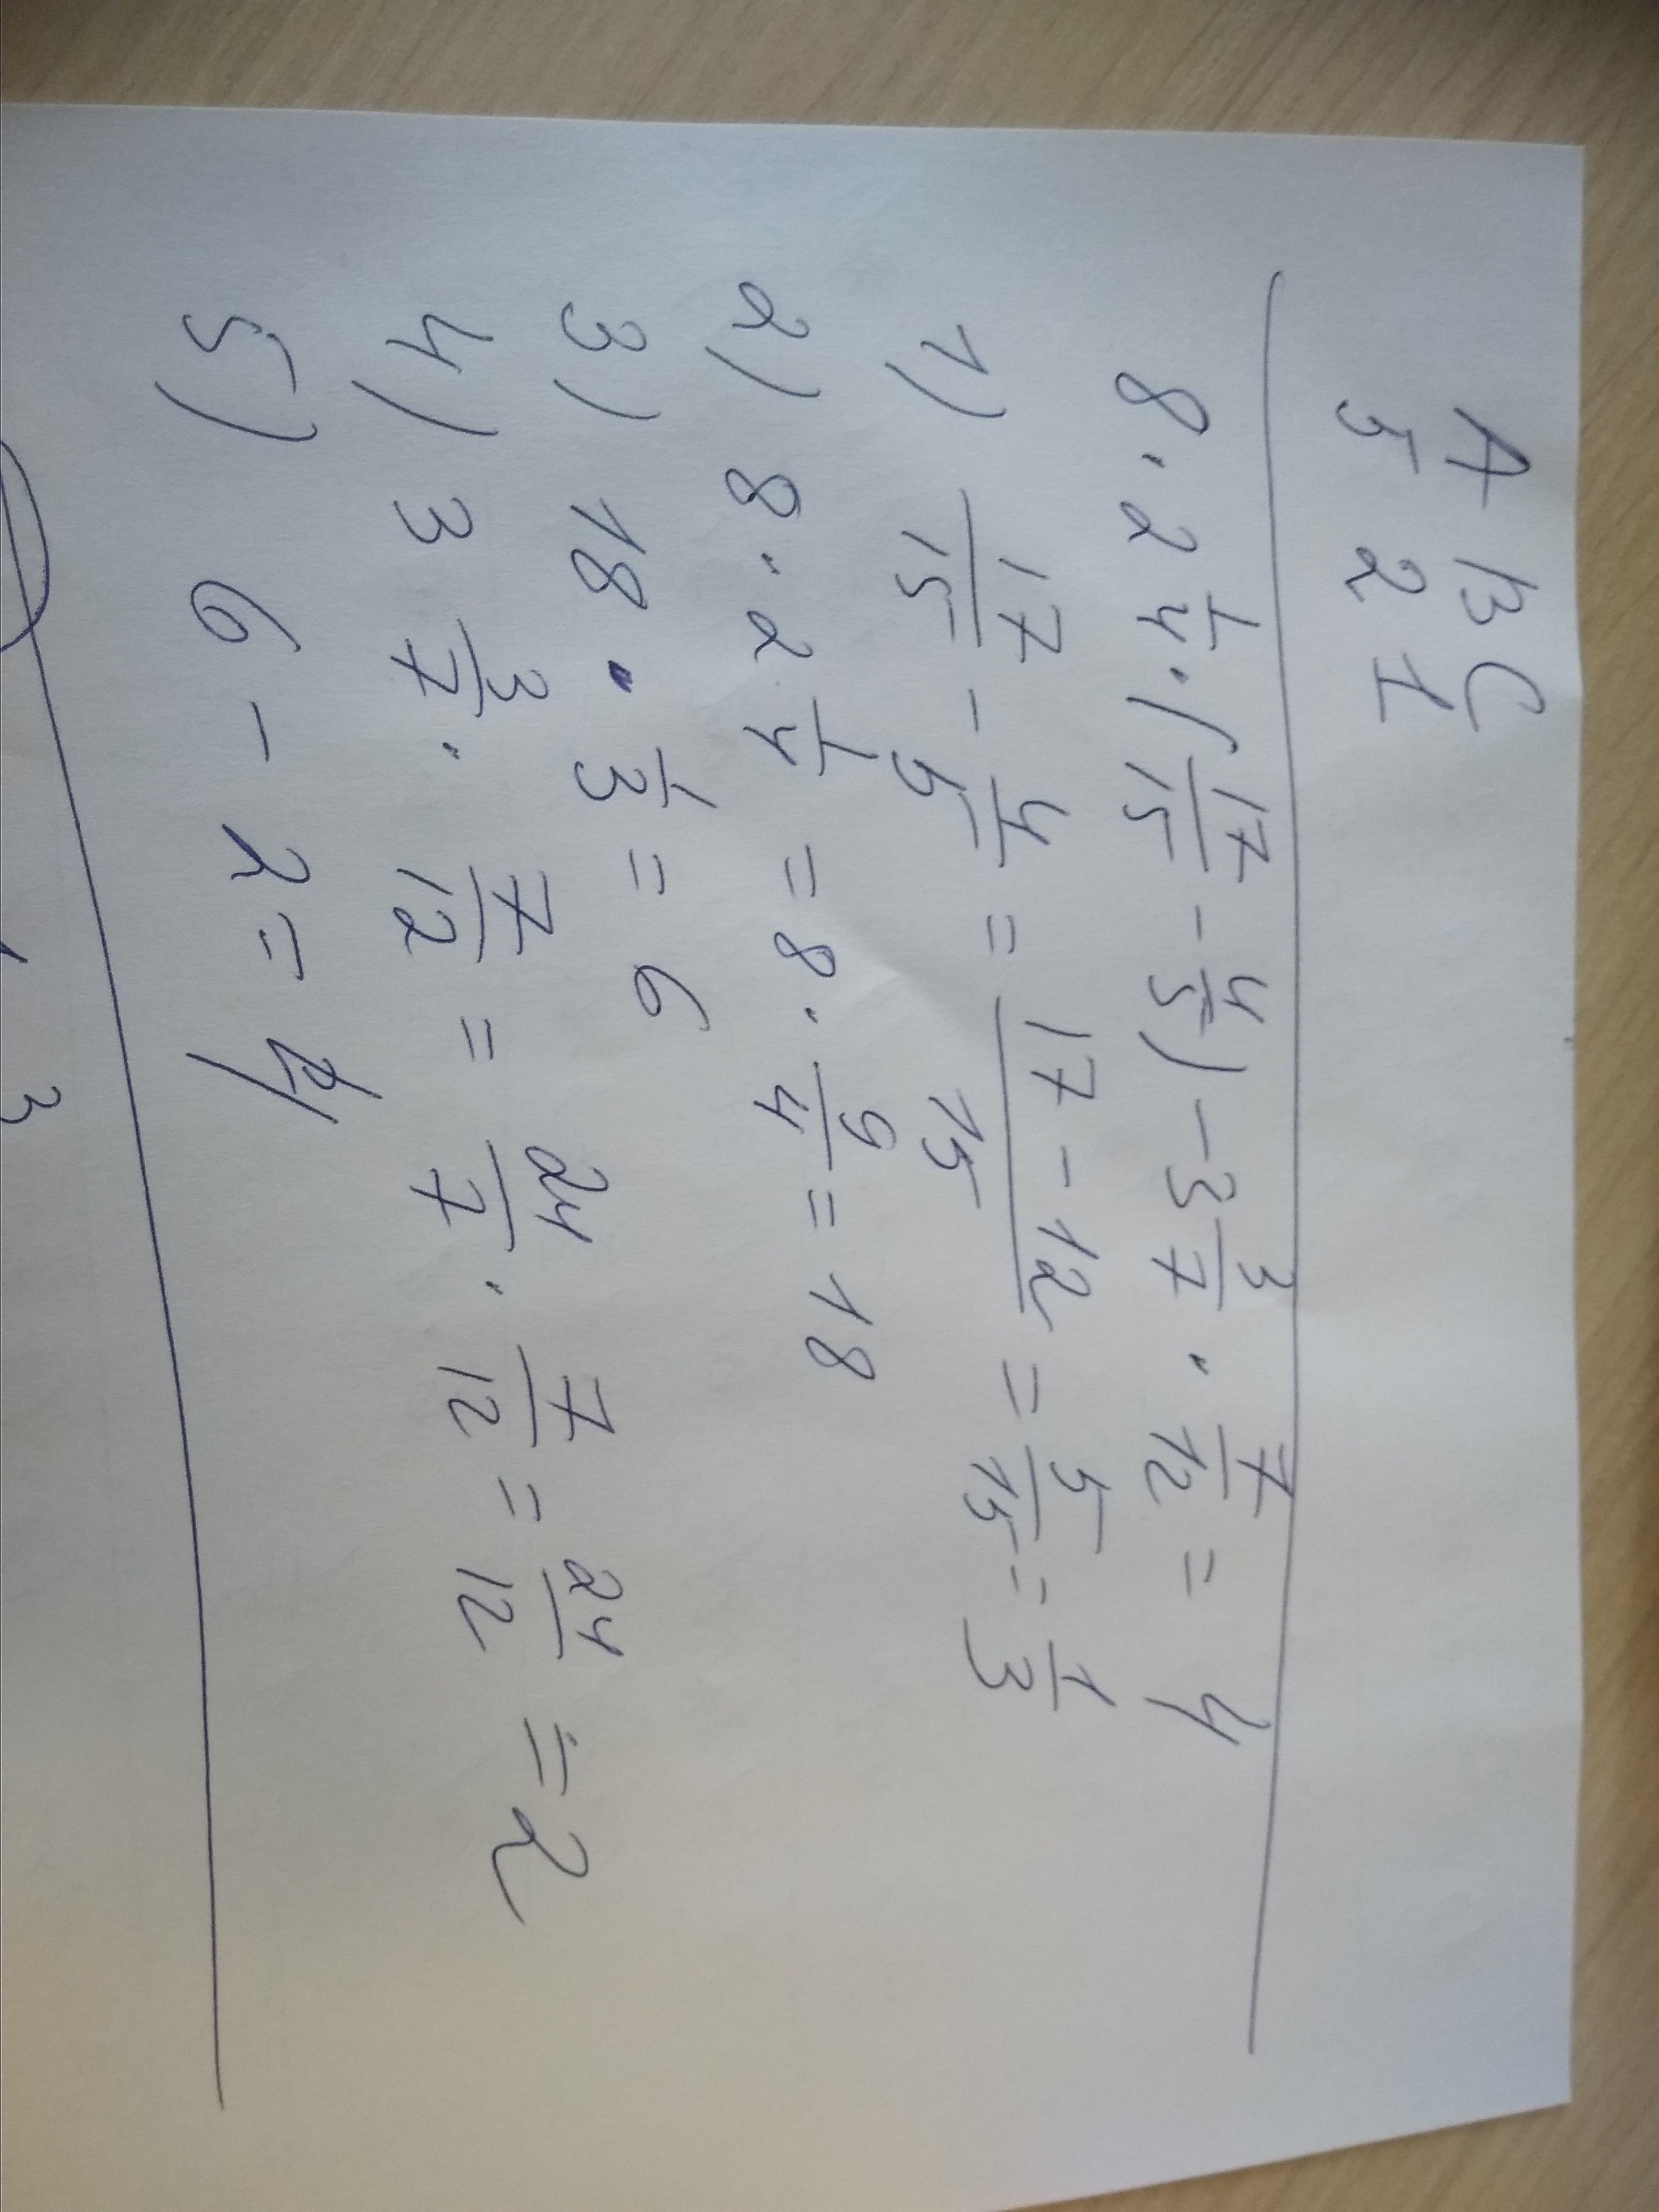 A B C
5 2 1
8 · 2 1/4 · (17/15 - 4/5) - 3 3/7 · 7/12 = 4
1) 17/15 - 4/5 = (17 - 12)/15 = 5/15 = 1/3
2) 8 · 2 1/4 = 8 · 9/4 = 18
3) 18 · 1/3 = 6
4) 3 3/7 · 7/12 = 24/7 · 7/12 = 24/12 = 2
5) 6 - 2 = 4
3